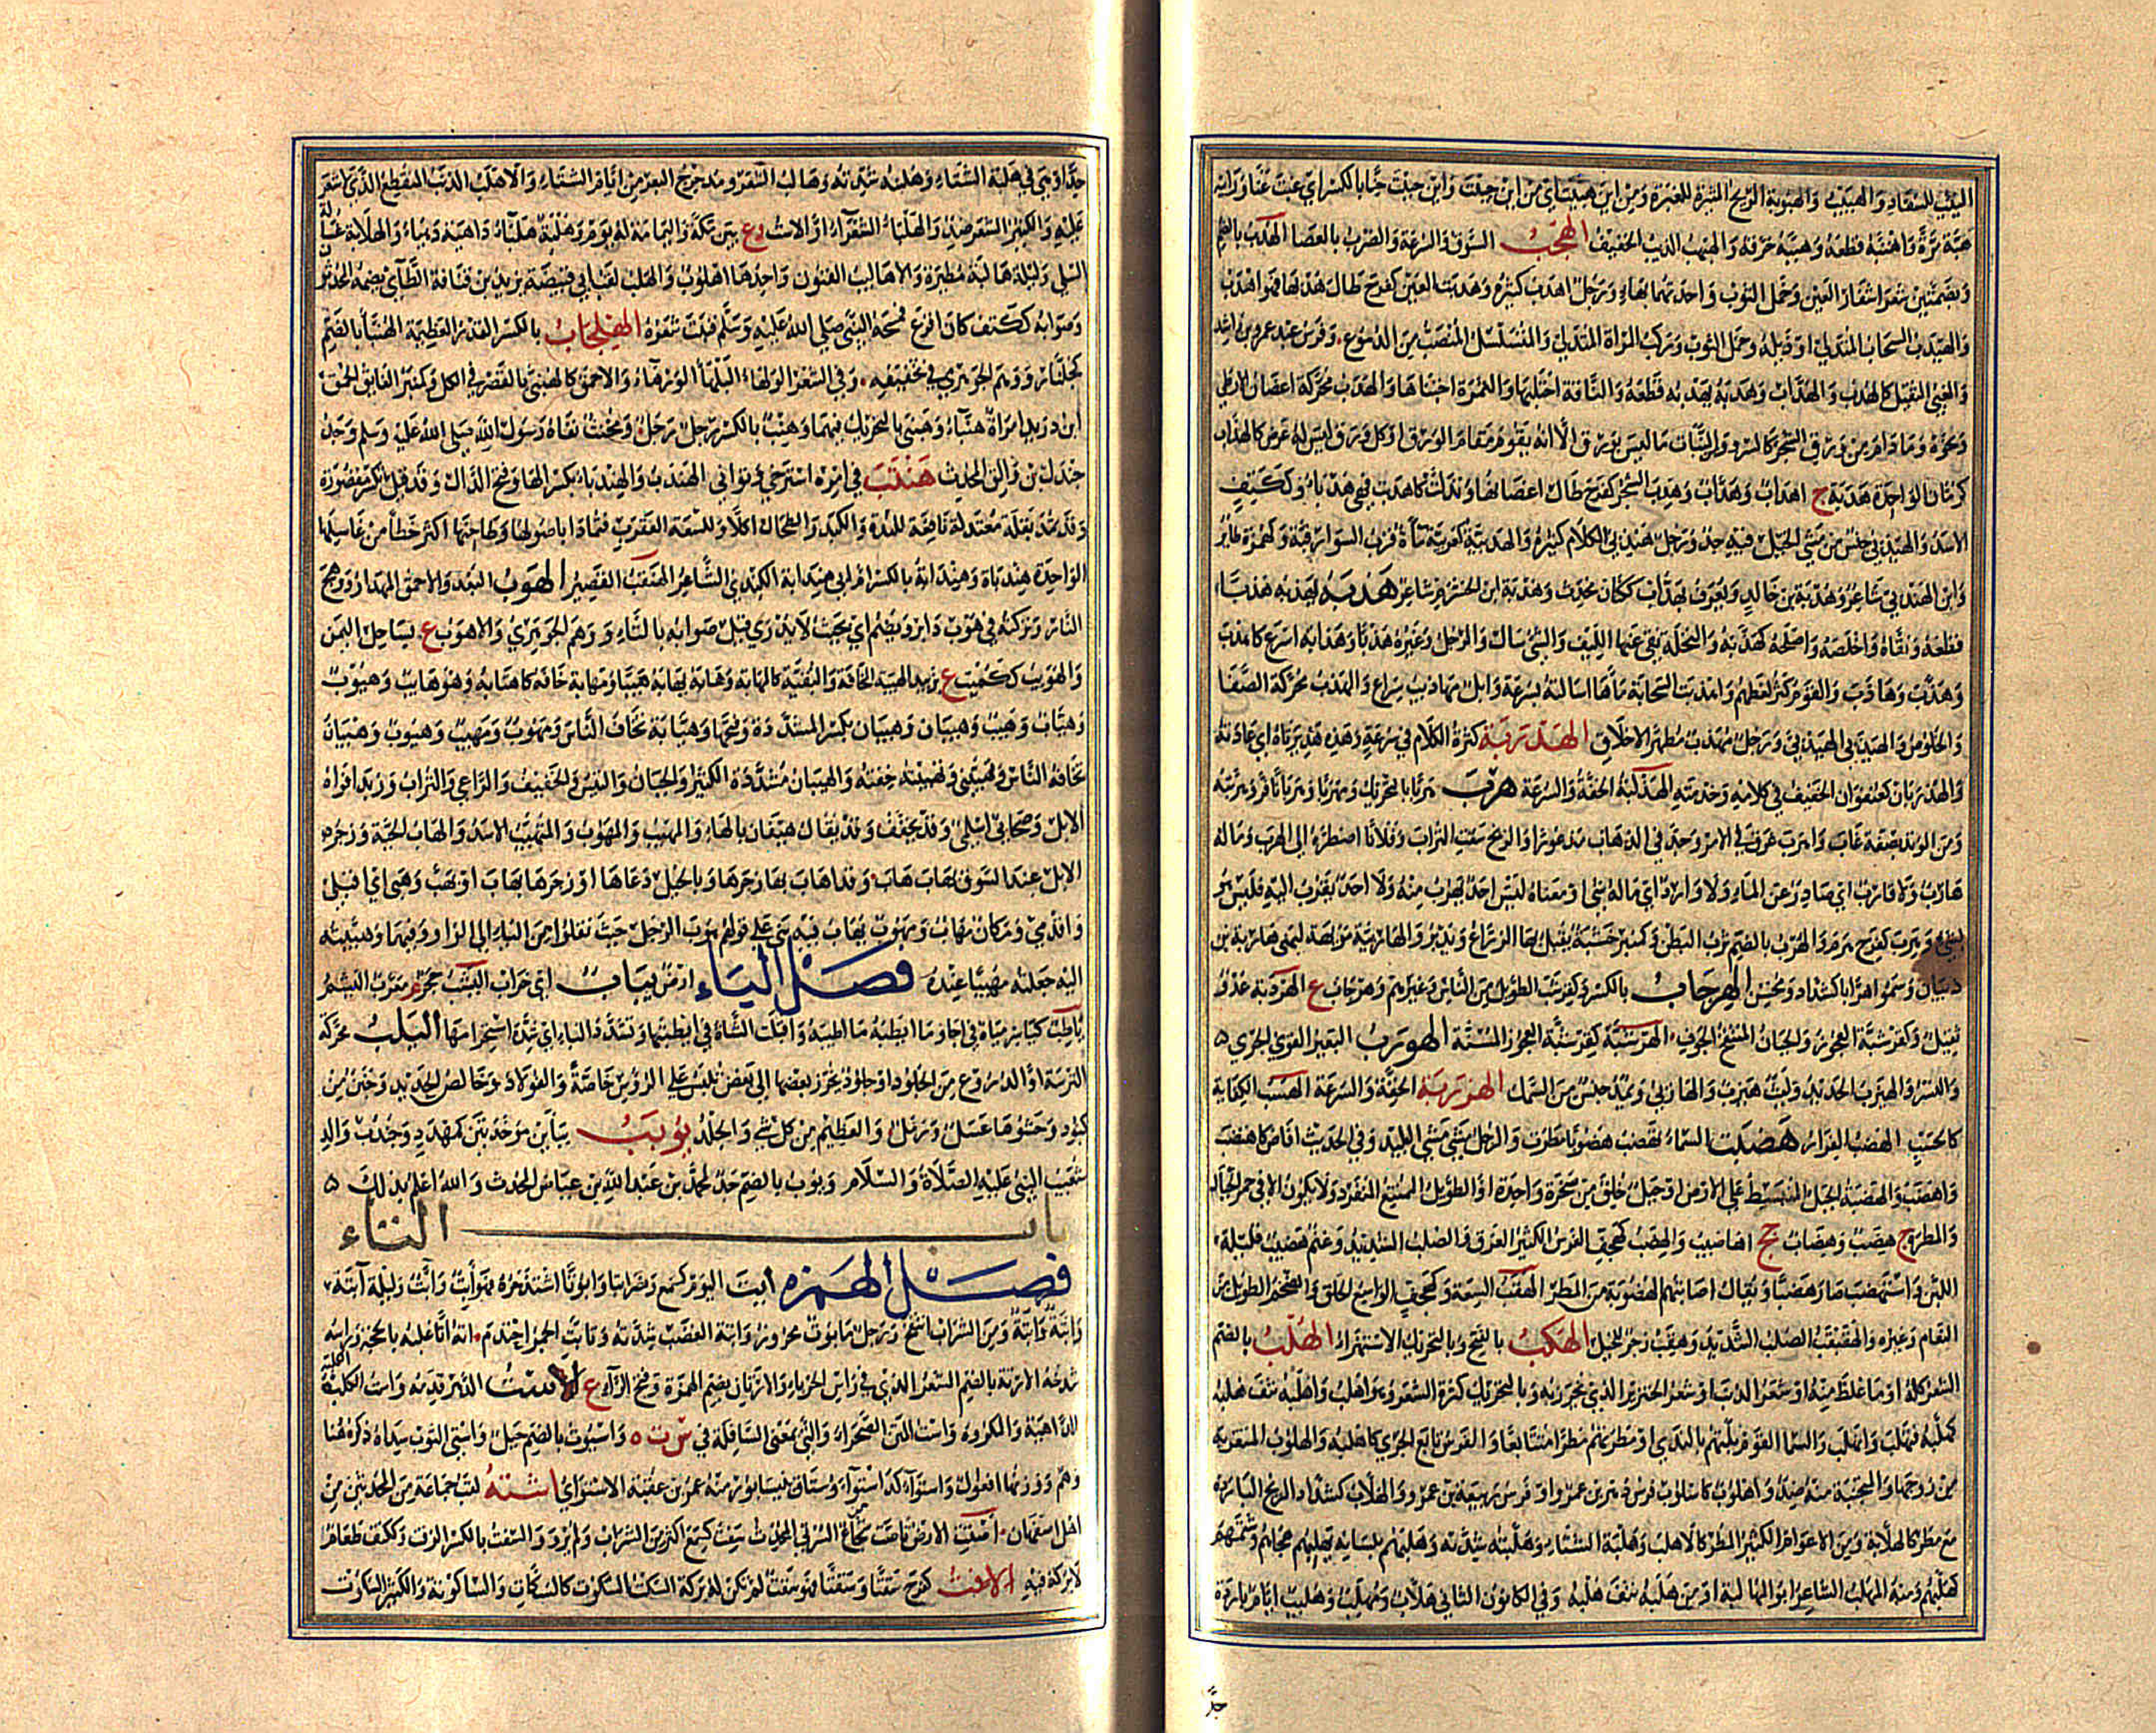 التيس للسفاد والهبيب والهبوبة الريح المثيرة للغبرة ومن اين هببت اي من اين جئت واين هببت عنا بالكسر اي غبت عنا ورايته
هبة مرة واهتبه قطعه وهببه خرقه والهبهب الذيب الخفيف الهجب السوق والسرعة والضرب بالعصا الهدب بالضم
وبضمتين شعر اشفار العين وخمل الثوب واحدتهما بهاء ورجل اهدب كثيره وهدبت العين كفرح طال هدبها فهو اهدب
والهيدب السحاب المتدلي او ذيله وخمل الثوب وركب المراة المتدلي والمتسلسل المنصب من الدموع وفرس عبد عمرو بن راشد
والعيي الثقيل كالهدب والهداب وهدبه يهدبه قطعه والناقة احتلبها والثمرة اجتناها والهدب محركة اغصان الارطى
ونحوه وما دام من ورق الشجر كالسرو ومن النبات ما ليس بورق الا انه يقوم مقام الورق او كل ورق ليس له عرض كالهداب
كرمان الواحدة هدبة ج اهداب وهداب وهدب الشجر كفرح طال اغصانها وتدلت كاهدبت فهي هدباء وككتف
الاسد والهيدبى جنس من مشي الخيل فيه جد ورجل هيدبي الكلام كثيره والهدبية كعربية ماءة قرب السوارقية وكهمزة طاير
وابن الهيدبي شاعر وهدبة بن خالد ويعرف بهداب ككتان محدث وهدبة ابن الخشرم شاعر هذبه يهذبه هذبا
قطعه ونقاه واخلصه واصلحه كهذبه والنخلة نقى عنها الليف والشي سال والرجل وغيره هذبا وهذابه اسرع كاهذب
وهذب وهاذب والقوم كثر لغطهم واهذبت السحابة ماءها اسالته بسرعة وابل مهاذيب سراع والهذب محركة الصفا
والخلوص والهيذبى الهيدبى ورجل مهذب مطهر الاخلاق الهذربة كثرة الكلام في سرعة وهذه هذيرباه اي عادته
والهذربان كعنفوان الخفيف في كلامه وخدمته الهذلبة الخفة والسرعة هرب هربا بالتحريك ومهربا وهربانا فر وهربه
ومن الوتد نصفه غاب واهرب غرق في الامر وجد في الذهاب مذعورا والريح سفت التراب وفلانا اضطره الى الهرب وماله
هارب ولا قارب اي صادر عن الماء ولا وارد اي ماله شي او معناه ليس احد يهرب منه ولا احد يقرب اليه فليس هو
بشي وهرب كفرح هرم والهرب بالضم ثرب البطن وكمنبر خشبة يقبل بها الزراع ويدبر والهاربية مويهة لبني هاربة بن
ذبيان وسموا هرابا كشداد ومحسن الهرجاب بالكسر وكقرشب الطويل من الناس وغيرهم وهرجاب ع الهردبة عدو
ثقيل وكقرشبة العجوز والجبان المنتفخ الجوف الهرشبة كقرشبة العجوز المسنة الهوزب البعير القوي الجري
والنسر والهيزب الحديد وليث هيزب والهازبى ويمد جنس من السمك الهوزبة الخفة والسرعة الهسب الكفاية
كالحسب الهضب الفرار هضبت السماء تهضب هضوبا مطرت والرجل مشى مشي البليد وفي الحديث افاض كاهضب
واهتضب والهضبة الجبل المنبسط على الارض او جبل خلق من صخرة واحدة او الطويل الممتنع المنفرد ولا يكون الا في حمر الجبال
والمطرة ج هضب وهضاب جج اهاضيب والهضب كهجف الفرس الكثير العرق والصلب الشديد وغنم هضيب قليلة
اللبن واستهضب صار هضبا ويقال اصابتهم اهضوبة من المطر الهقب السعة وكهجف الواسع الحلق والضخم الطويل من
النعام وغيره والهقبقب الصلب الشديد وهقب زجر للخيل الهكب بالفتح وبالتحريك الاستهزاء الهلب بالضم
الشعر كله او ما غلظ منه او شعر الذنب او شعر الخنزير الذي يخرز به وبالتحريك كثرة الشعر وهو اهلب واهلبه نتف هلبه
كهلبه فتهلب وانهلب والسما القوم بلتهم بالندى او مطرتهم مطرا متتابعا والفرس تابع الجري كاهلب والهلوب المتقربة
من زوجها والمتجنبة منه ضد واهلوب كاسلوب فرس دهر بن عمرو او فرس ربيعة بن عمرو والهلاب كشداد الريح الباردة
مع مطر كالهلابة ومن الاعوام الكثير المطر كالاهلب وهلبة الشتاء وهلبته شدته وهلبهم بلسانه يهلبهم هجاهم وشتمهم
كهلبهم ومنه المهلب الشاعر ابو المهالبة او من هلبه نتف هلبه وفي الكانون الثاني هلاب ومهلب وهليب ايام باردة
جدا
جدا او هي في هلبة الشتاء وهلبته شدته وهالب الشعر ومدحرج البعر من ايام الشتاء والاهلب الذنب المنقطع الذي لاشعر
عليه والكثير الشعر ضد والهلباء الشعراء او الاست وع بين مكة واليمامة له يوم وهلبة هلباء داهية دهياء والهلابة غسالة
السلى وليلة هالبة مطيرة والاهاليب الفنون واحدها اهلوب والهلب لقب ابي قبيصة يزيد بن قنافة الطايي يضمه المحدثون
وصوابه ككتف كان اقرع فمسحه النبي صلى الله عليه وسلم فنبت شعره الهلجاب بالكسر القدر العظيمة الهنبا بالضم
كجلنار ووهم الجوهري في تخفيفه وفي الشعر الورهاء البلهاء الورهاء والاحمق كالهنبى بالقصر في الكل وكمنبر الفايق الحمق
ابن دريد امراة هنباء وهنبى بالتحريك فيهما وهنب بالكسر رجل ومخنث نفاه رسول الله صلى الله عليه وسلم وجد
جندل بن والق المحدث هندب في امره استرخى وتوانى الهندب والهندباء بكسر الها وفتح الدال وقد تكسر مقصورة
وقد تمد بقلة معتدلة نافعة للمعدة والكبد والطحال اكلا وللسعة العقرب ضمادا باصولها وطابخها اكثر خطأ من غاسلها
الواحدة هندباة وهندابة بالكسر ام ابي هندابة الكندي الشاعر الهنقب القصير الهوب البعد والاحمق المهذار ووهج
النار وتركته في هوب دابر ويضم اي بحيث لا يدرى قيل صوابه بالتاء ووهم الجوهري والاهوب ع بساحل اليمن
والهويب ككميت ع بزبيد الهيبة المخافة والتقية كالمهابة وهابه يهابه هيبا ومهابة خافه كاهتابه وهو هايب وهيوب
وهياب وهيب وهيبان وهيبان بكسر المشددة وفتحها وهيابة يخاف الناس ومهوب ومهيب وهيوب وهيبان
يخافه الناس وتهيبني وتهيبته خفته والهيبان مشددة الكثير والجبان والتيس والخفيف والراعي والتراب وزبد افواه
الابل وصحابي اسلمي وقد يخفف وقد يقال هيفان بالفاء والمهيب والمهوب والمتهيب الاسد والهاب الحية وزجر
الابل عند السوق بهاب هاب وقد اهاب بها زجرها وبالخيل دعاها او زجرها بهاب او بهب وهبي اي اقبلي
واقدمي ومكان مهاب ومهوب يهاب فيه بني على قولهم هوب الرجل حيث نقلوا من الياء الى الواو وفيهما وهيبته
اليه جعلته مهيبا عنده فصل الياء ارض يباب اي خراب
ياطب كياسر مياه في اجا وما ايطبه ما اطيبه واقبلت الشاة في ايطبتها وتشدد الباء اي شدة استحرامها اليلب محركة
الترسة او الدروع من الجلود او جلود يخرز بعضها الى بعض تلبس على الروس خاصة والفولاذ وخالص الحديد وجنن من
لبود وحشوها عسل ورمل والعظيم من كل شي والجلد يوبب بياين موحدتين كمهدد وجندب والد
شعيب النبي عليه الصلاة والسلام ويوب بالضم جد لمحمد بن عبد الله بن عياض المحدث والله اعلم بذلك
باب التاء
فصل الهمزه ابت اليوم كسمع ونصر ابتا وابوتا اشتد حره فهو ابت وابت وليلة ابتة
وابتة وابتة ومن الشراب انتفخ ورجل مابوت محرور وابتة الغضب شدته وتابت الجمر احتدم اته اتا غلبه بالحجة وراسه
شدخه الارتة بالضم الشعر الذي في راس الحرباء والارتان بضم الهمزة وفتح الراء ع الاست الدهر قدمه واست الكلبة
الداهية والمكروه واست المتن الصحراء والتي بمعنى السافلة في س ت ه واسيوت بالضم جبل واستي الثوب سداه ذكره هنا
وهم ووزنها افعول واستواء كدستواء رستاق نيسابور منه عمر بن عقبة الاستوايي اشتة لقب جماعة من المحدثين من
اهل اصفهان
لا بركة فيه الافت